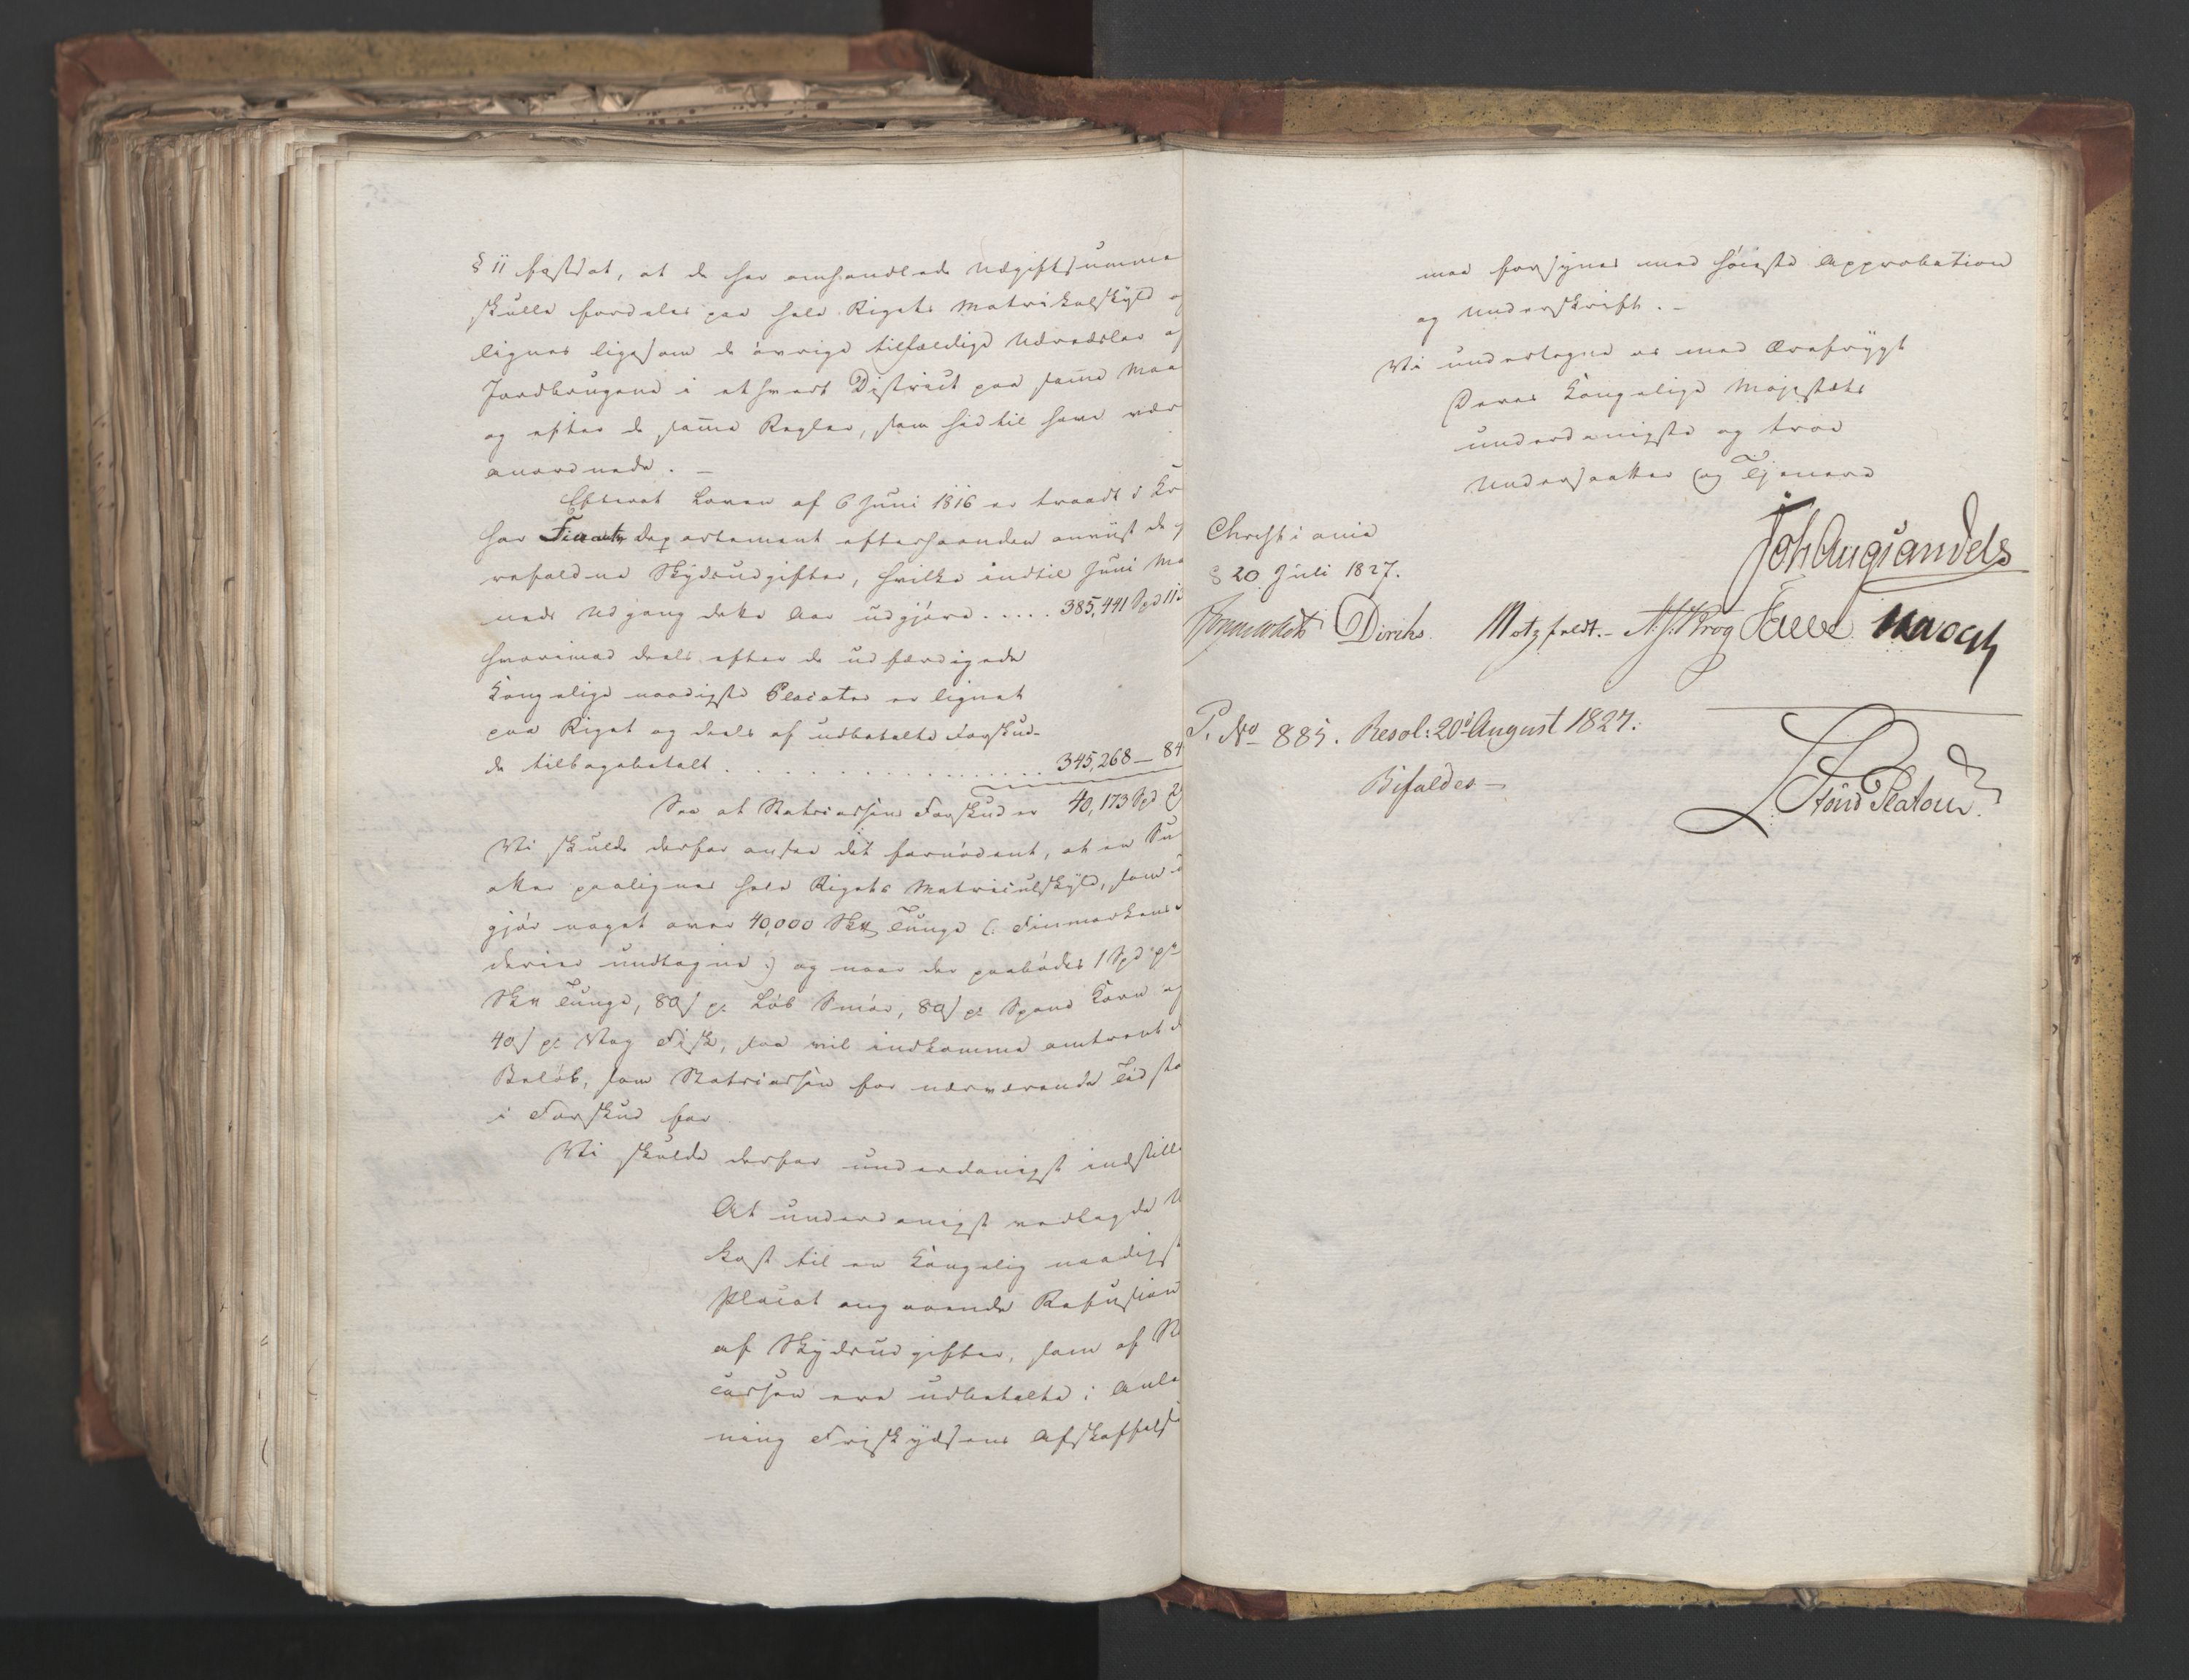 § 11 fastsat, at de her omhandlede Udgiftssumme
skulle fordeles paa hele Rigets Matrikulskyld og
lignes ligesom de øvrige tilfældige Udredsler af
Jordbrugene i ethvert District paa same Maa
og efter de samme Regler, som hidtil have vær
anordnede. –
Efterat Loven af 6 Juni 1816 er traadt i Kr
har Finants departement efterhaanden anviist de
refaldne Skydsudgifter, hvilke indtil Juni Ma
neds Udgang dette Aar udgjøre ..... 385,441 Spd 11
hvorimod deels efter de udfærdigede
Kongelige naadigste Placater er lignet
paa Riget og deels af udbetalte Forskud-
de tilbagebetalt ................. 345,268 – 84
Saa at Statscassens Forskud er 40,173 Spd
Vi skulde derfor ansee det fornødent, at en Su
atter paalignes hele Rigets Matriculskyld, som
gjør noget over 40,000 Sk℔ Tunge (: Finmarkens
derier undtagne :) og naar der paabødes 1 Spd pr
Sk℔ Tunge, 80 s pr Løb Smør, 80 s pr Spand Korn og
40 s pr Vog Fisk, saa vil indkomme omtrent d
Beløb, som Statscassen for nærværende Tid sta
i Forskud for.
Vi skulde derfor underdanigst indstille
At underdanigst vedlagde U
kast til en Kongelig naadigst
Placat angaaende Refusion
af Skydsudgifter, som af St
cassen ere udbetalte i Anle
ning Friskydsens Afskaffelse
maa forsynes med høieste Approbation
og Underskrift. –
Vi undertegne os med Ærefrygt
Deres Kongelige Majestæts
underdanigste og troe
Undersaatter og Tjenere
Joh Aug Sandels
Christiania
d 20 Juli 1827.
Sommerhielm Diriks. Motzfeldt. – Krog Fasting
P. No 885. Resol: 20de August 1827.
Bifaldes –
Platou.